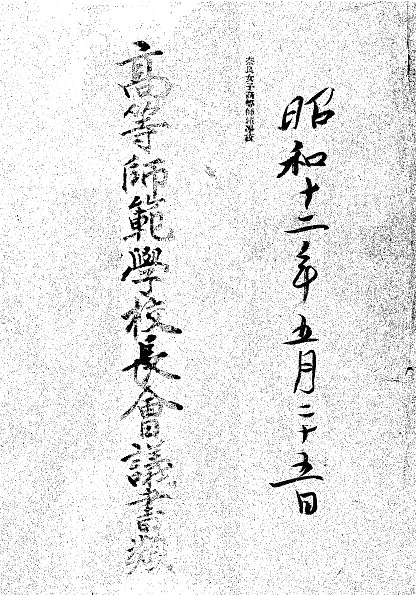 昭和十二年五月二十五日
奈良女子高等師範學校
高等師範學校長會議書類